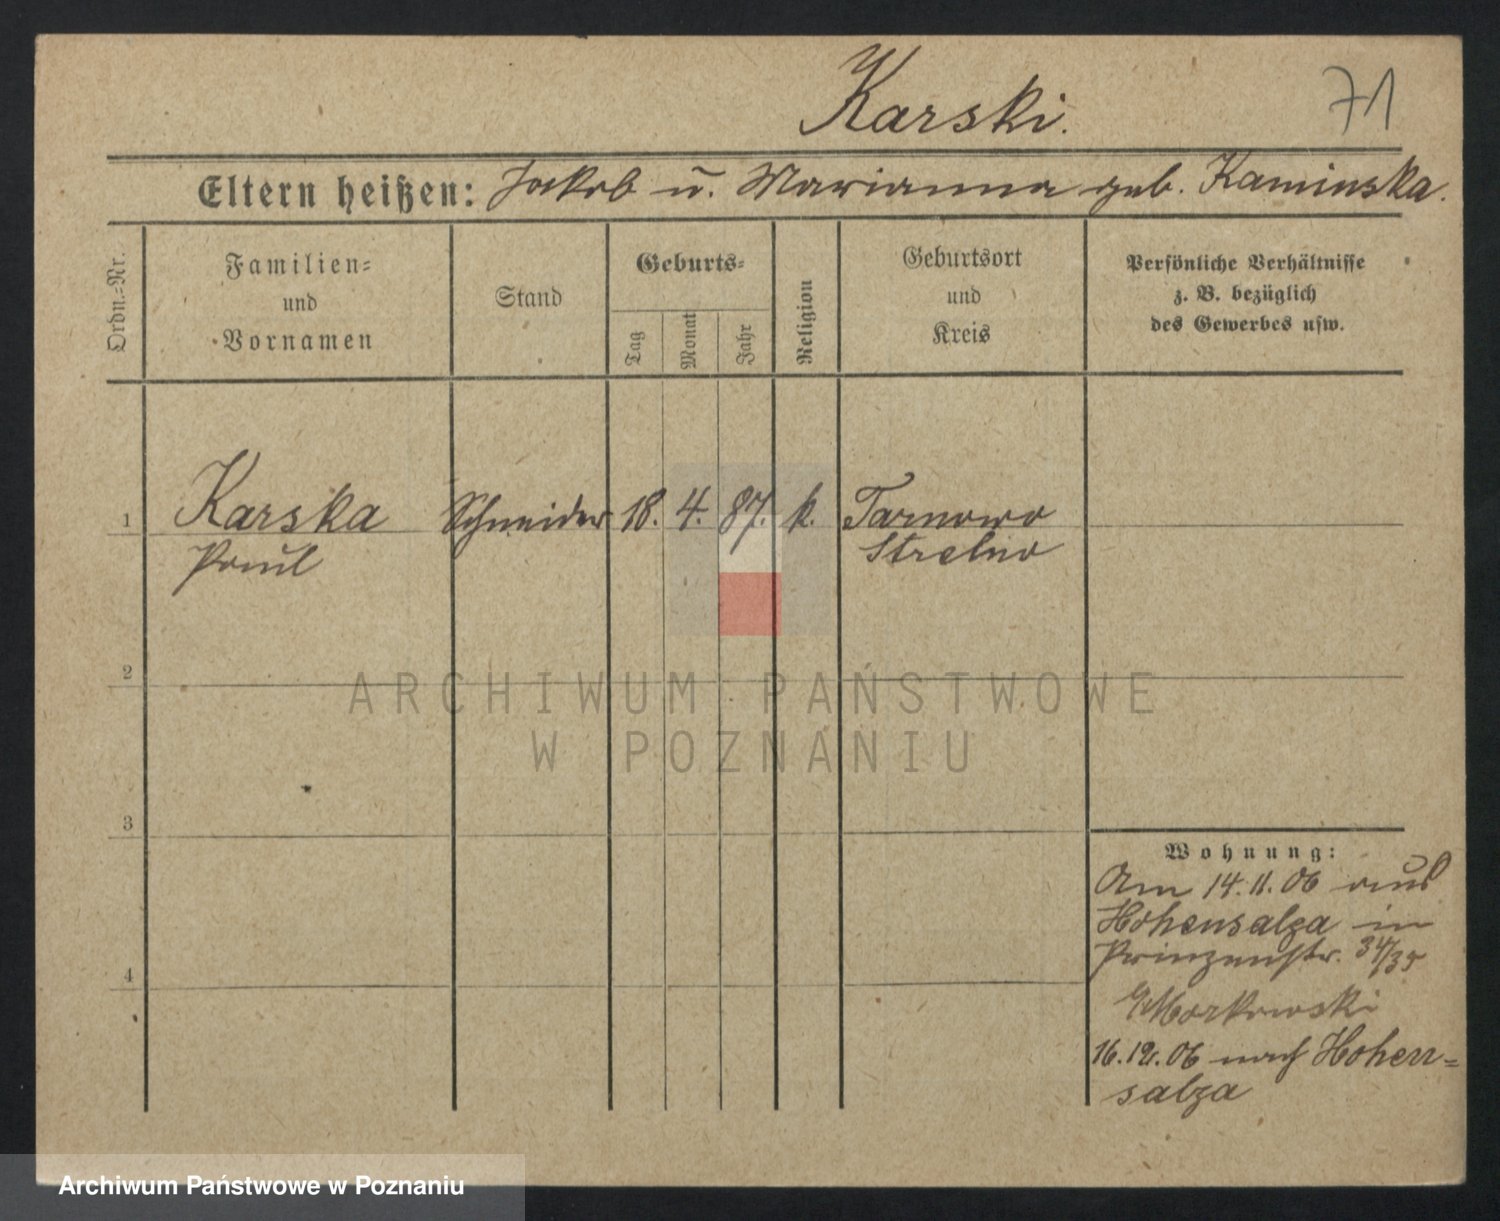 Karski.
71
Eltern heißen: Jakob u. Marianna geb. Kaminska.
Ordn.-Nr.
Familien-
und
Vornamen
Stand
Geburts-
Tag
Monat
Jahr
Religion
Geburtsort
und
Kreis
Persönliche Verhältnisse
z. B. bezüglich
des Gewerbes usw.
1 Karska Schneider 18. 4. 87. k. Tarnowo
Paul Strelno
2
ARCHIWUM PAŃSTWOWE
W POZNANIU
3
Wohnung:
Am 14.11.06 aus
Hohensalza in
Prinzenstr. 34/35
4
b/Morkowski
16.12.06 nach Hohen-
salza
Archiwum Państwowe w Poznaniu